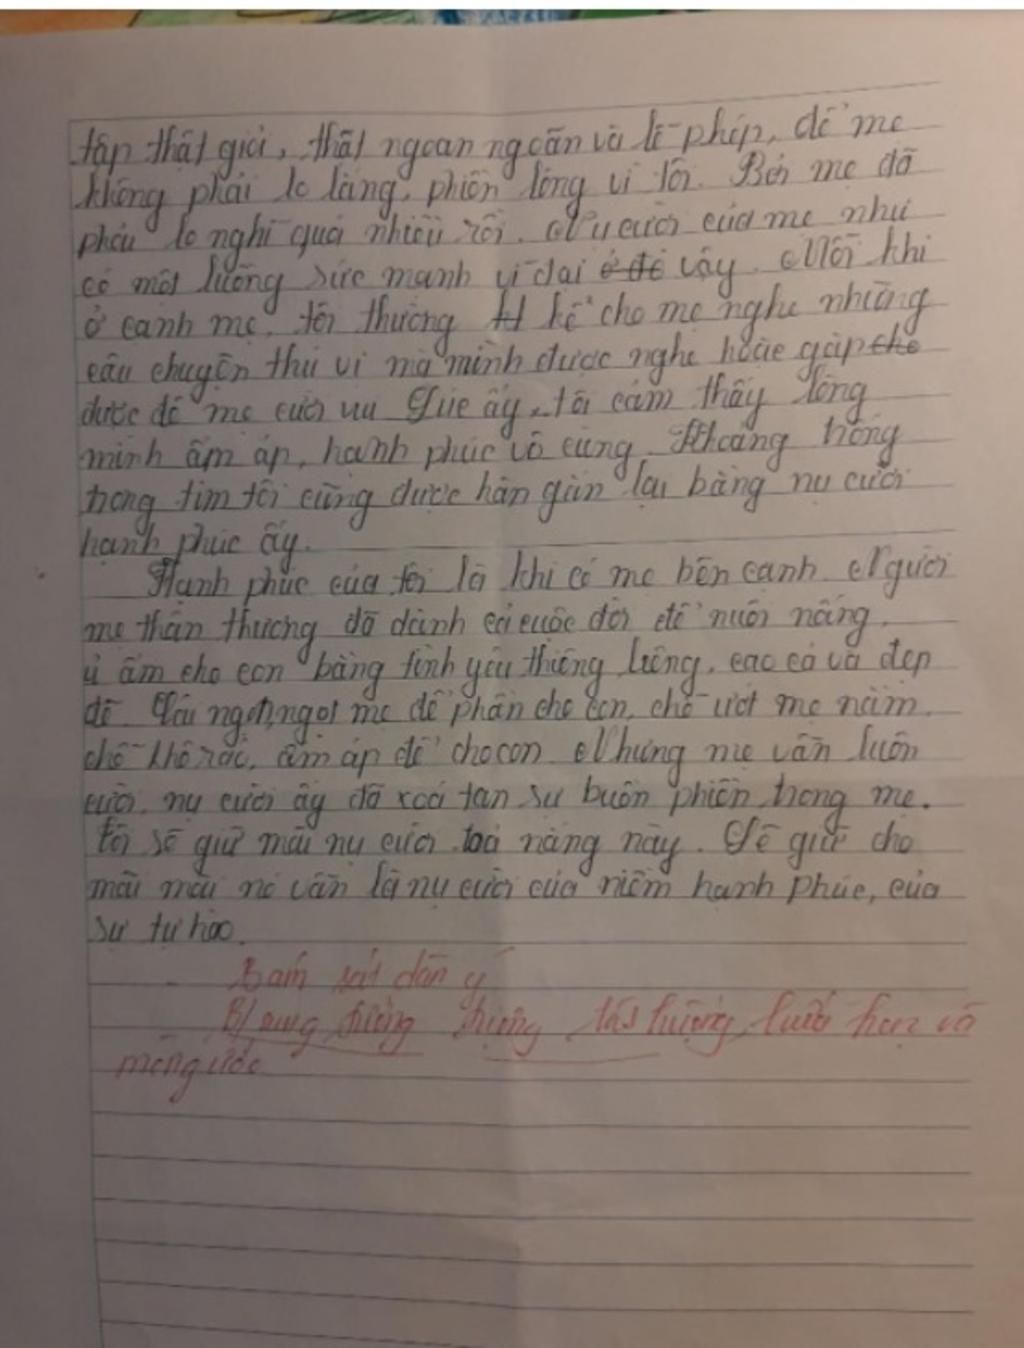 tập thật giỏi, thật ngoan ngoãn và lễ phép, để mẹ
không phải lo lắng, phiền lòng vì tôi. Bởi mẹ đã
phải lo nghĩ quá nhiều rồi. Nụ cười của mẹ như
có một luồng sức mạnh vĩ đại ở đó vậy. Mỗi khi
ở cạnh mẹ, tôi thường kể cho mẹ nghe những
câu chuyện thú vị mà mình được nghe hoặc gặp cho
được để mẹ cười vui. Lúc ấy, tôi cảm thấy lòng
mình ấm áp, hạnh phúc vô cùng. Khoảng trống
trong tim tôi cũng được hàn gắn lại bằng nụ cười
hạnh phúc ấy.
Hạnh phúc của tôi là khi có mẹ bên cạnh. Người
mẹ thân thương đã dành cả cuộc đời để nuôi nấng,
ủ ấm cho con bằng tình yêu thiêng liêng, cao cả và đẹp
đẽ. Cái ngọt, ngọt mẹ để phần cho con, chỗ ướt mẹ nằm,
chỗ khô ráo, ấm áp để cho con. Nhưng mẹ vẫn luôn
cười, nụ cười ấy đã xoá tan sự buồn phiền trong mẹ.
Tôi sẽ giữ mãi nụ cười toả nắng này. Để giữ cho
mãi mãi nó vẫn là nụ cười của niềm hạnh phúc, của
sự tự hào.
Bám sát dàn ý
tưởng tượng, lưu
mong ước